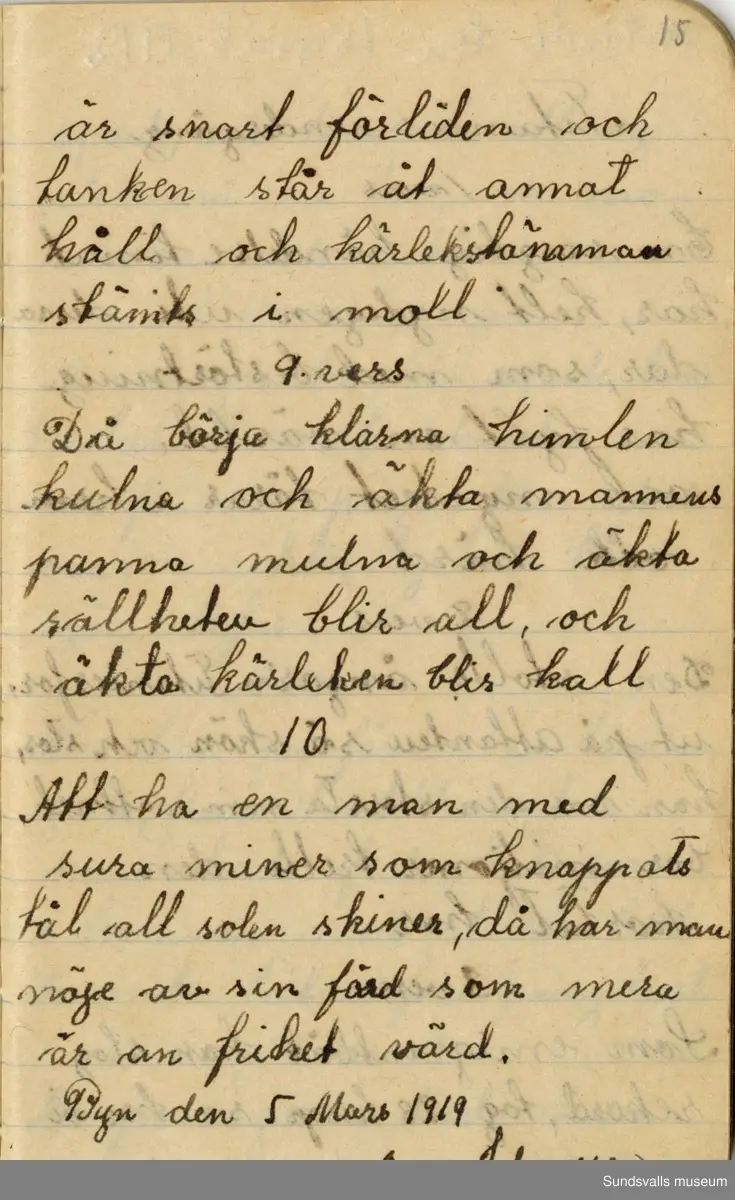 15
är snart förliden och
tanken står åt annat
håll och kärlekstämman
stämts i moll
9. vers
Då börja klarna himlen
kulna och äkta mannens
panna mulna och äkta
sällheten blir all, och
äkta kärleken blir kall
10
Att ha en man med
sura miner som knappats
tål all solen skiner, då har man
nöje av sin färd som mera
är an frihet värd.
Byn den 5 Mars 1919
Sundsvalls museum